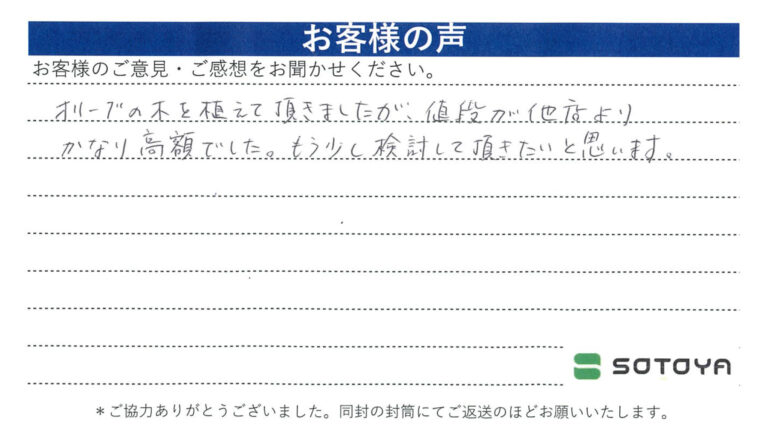 お客様の声
お客様のご意見・ご感想をお聞かせください。
オリーブの木を植えて頂きましたが、値段が他店より
かなり高額でした。もう少し検討して頂きたいと思います。
SOTOYA
＊ご協力ありがとうございました。同封の封筒にてご返送のほどお願いいたします。